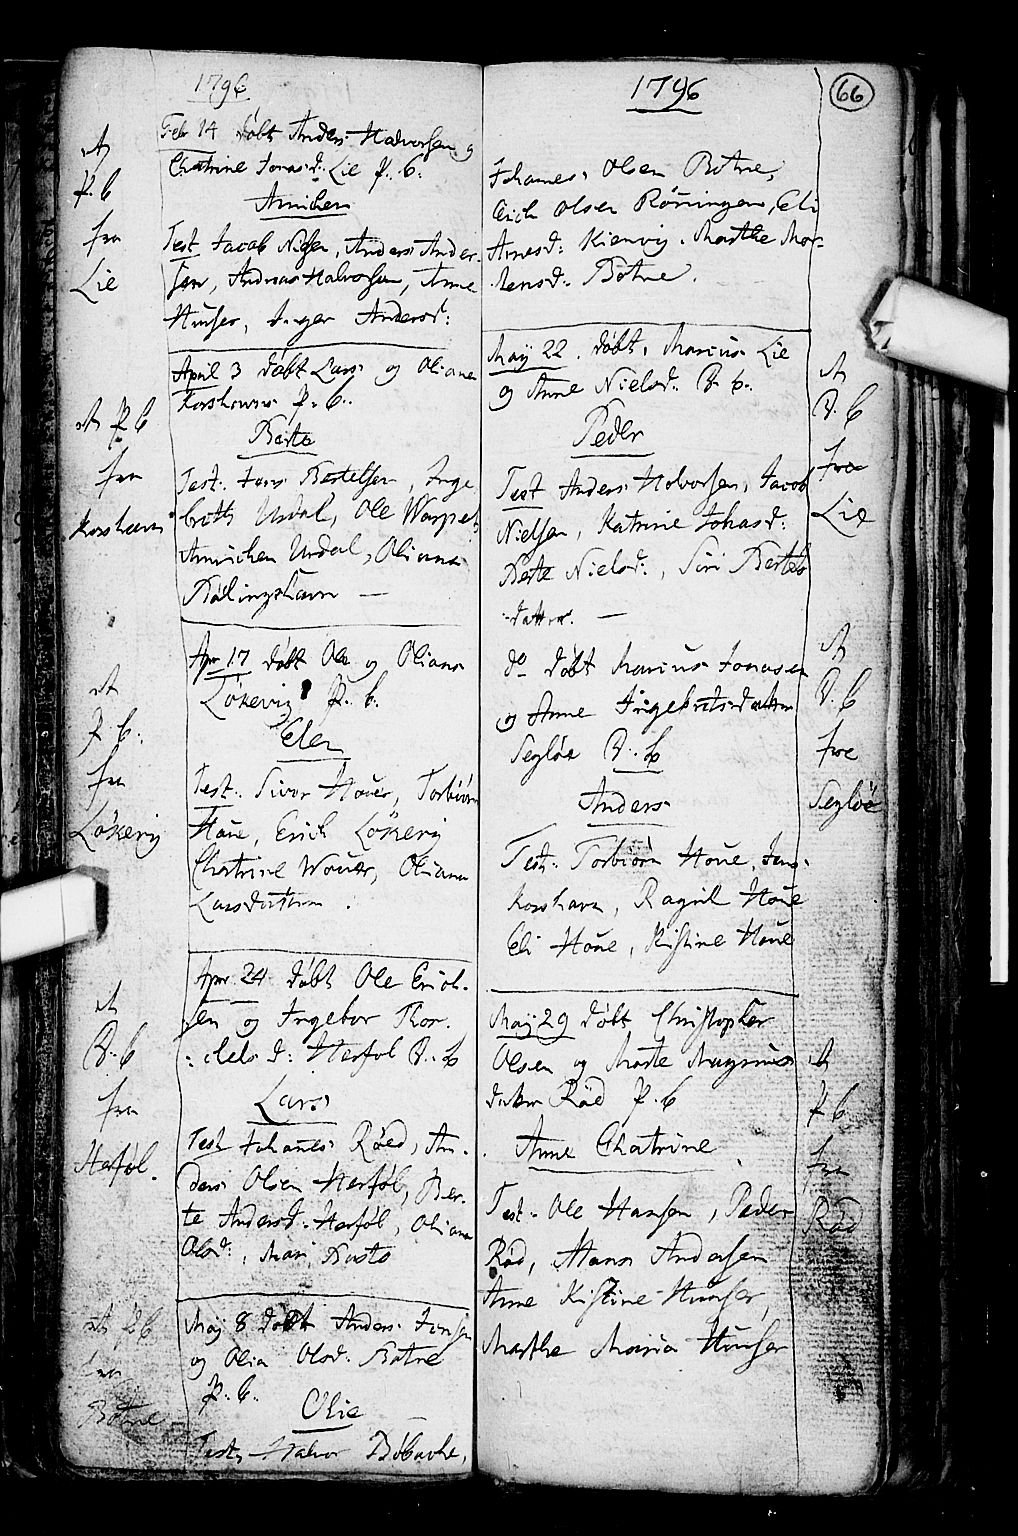 1796
Febr 14 døbt Anders Halvorsen og
Chatrine Jonasd: Lie P. b:
Annichen
Test Jacob Nilsen, Anders Ander-
sen, Andreas Halvorsen, Anne
Huuser, Inger Andersd:
et
P. b
fra
Lie
April 3 døbt Lars og Oliana
Korshavn P. b.
Berte
Test. Jens Bertelsen, Inge
britt Urdal, Ole
Annichen Urdal, Oliana
Bålingshavn —
et P b
fra
Korshavn
Apr 17 døbt Ole og Oliana
Løkevig P. b.
Elen
Test. Sivor Houe, Torbiørn
Houe, Erich Løkevig
Chatrine, Oliana
Larsdatter.
et
P. b.
fra
Løkevig
Apr 24 døbt Ole Erich-
sen og Ingebor Thor-
: d: Herføl D. b
Lars
Test Johanes Røed, An-
ders Olsen Herføl, Ber-
te Andersd. Herføl, Oliana
Olsd:, Mari
et
D. b
fra
Herføl.
Maÿ 8 døbt Anders Jensen
og Olia Olsd. Botne
P. b.
Olie
Test, Halvor
et P b
fra
Botne
1796
66
Johanes Olsen Botne,
Erich Olsen Rønningen, Eli
Arnesd: Kienvig. Marthe Mor-
tensd. Botne.
Maÿ 22. døbt, Marius Lie
og Anne Nielsd. D. b.
Peder
Test Anders Halvorsen, Jacob
Nielsen, Katrine Johasd:
Berte Nielsd:, Siri Bertels
datter. —
do døbt Marius Jonasen
og Anne Ingebretsdatter
Segløe D. b
Anders
Test. Torbiørn Houe, Jens
Korshavn, Ragnil Houe
Eli Houe, Kistine Houe
et
D. b
fra
Lie
et
D. b
fra
Segløe
Maÿ 29 døbt Christopher
Olsen og Marte Magnus
datter Rød P. b
Anne Chatrine
Test. Ole Hansen, Peder
Rød, Hans Andersen
Anne Kistine Huuser,
Marthe Maria Huuser
et
P b
fra
Rød